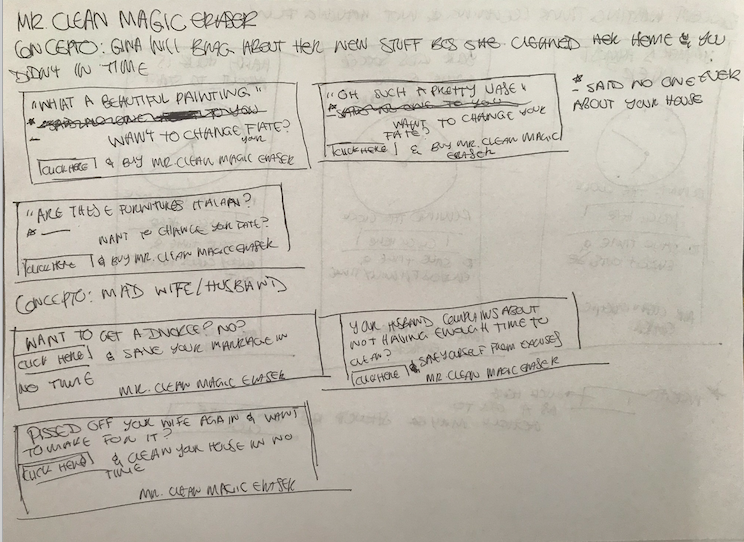 MR CLEAN MAGIC ERASER
CONCEPTO: GINA WILL BRAG ABOUT HER NEW STUFF BCS SHE CLEANED HER HOME & YOU
DIDN'T IN TIME
"WHAT A BEAUTIFUL PAINTING"
* SAID NO ONE TO YOU
WANT TO CHANGE YOUR FATE?
CLICK HERE & BUY MR. CLEAN MAGIC ERASER
"OH SUCH A PRETTY VASE"
* SAID NO ONE TO YOU
WANT TO CHANGE YOUR
FATE?
CLICK HERE & BUY MR. CLEAN MAGIC
ERASER
* SAID NO ONE EVER
ABOUT YOUR HOUSE
"ARE THESE FURNITURES ITALIAN?
*
WANT TO CHANGE YOUR FATE?
CLICK HERE & BUY MR. CLEAN MAGIC ERASER
CONCEPTO: MAD WIFE/HUSBAND
WANT TO GET A DIVORCE? NO?
CLICK HERE & SAVE YOUR MARRIAGE IN
NO TIME
MR. CLEAN MAGIC ERASER
YOUR HUSBAND COMPLAINS ABOUT
NOT HAVING ENOUGH TIME TO
CLEAN?
CLICK HERE & SAVE YOURSELF FROM EXCUSES
MR. CLEAN MAGIC ERASER
PISSED OFF YOUR WIFE AGAIN & WANT
TO MAKE FOR IT?
CLICK HERE & CLEAN YOUR HOUSE IN NO
TIME
MR. CLEAN MAGIC ERASER